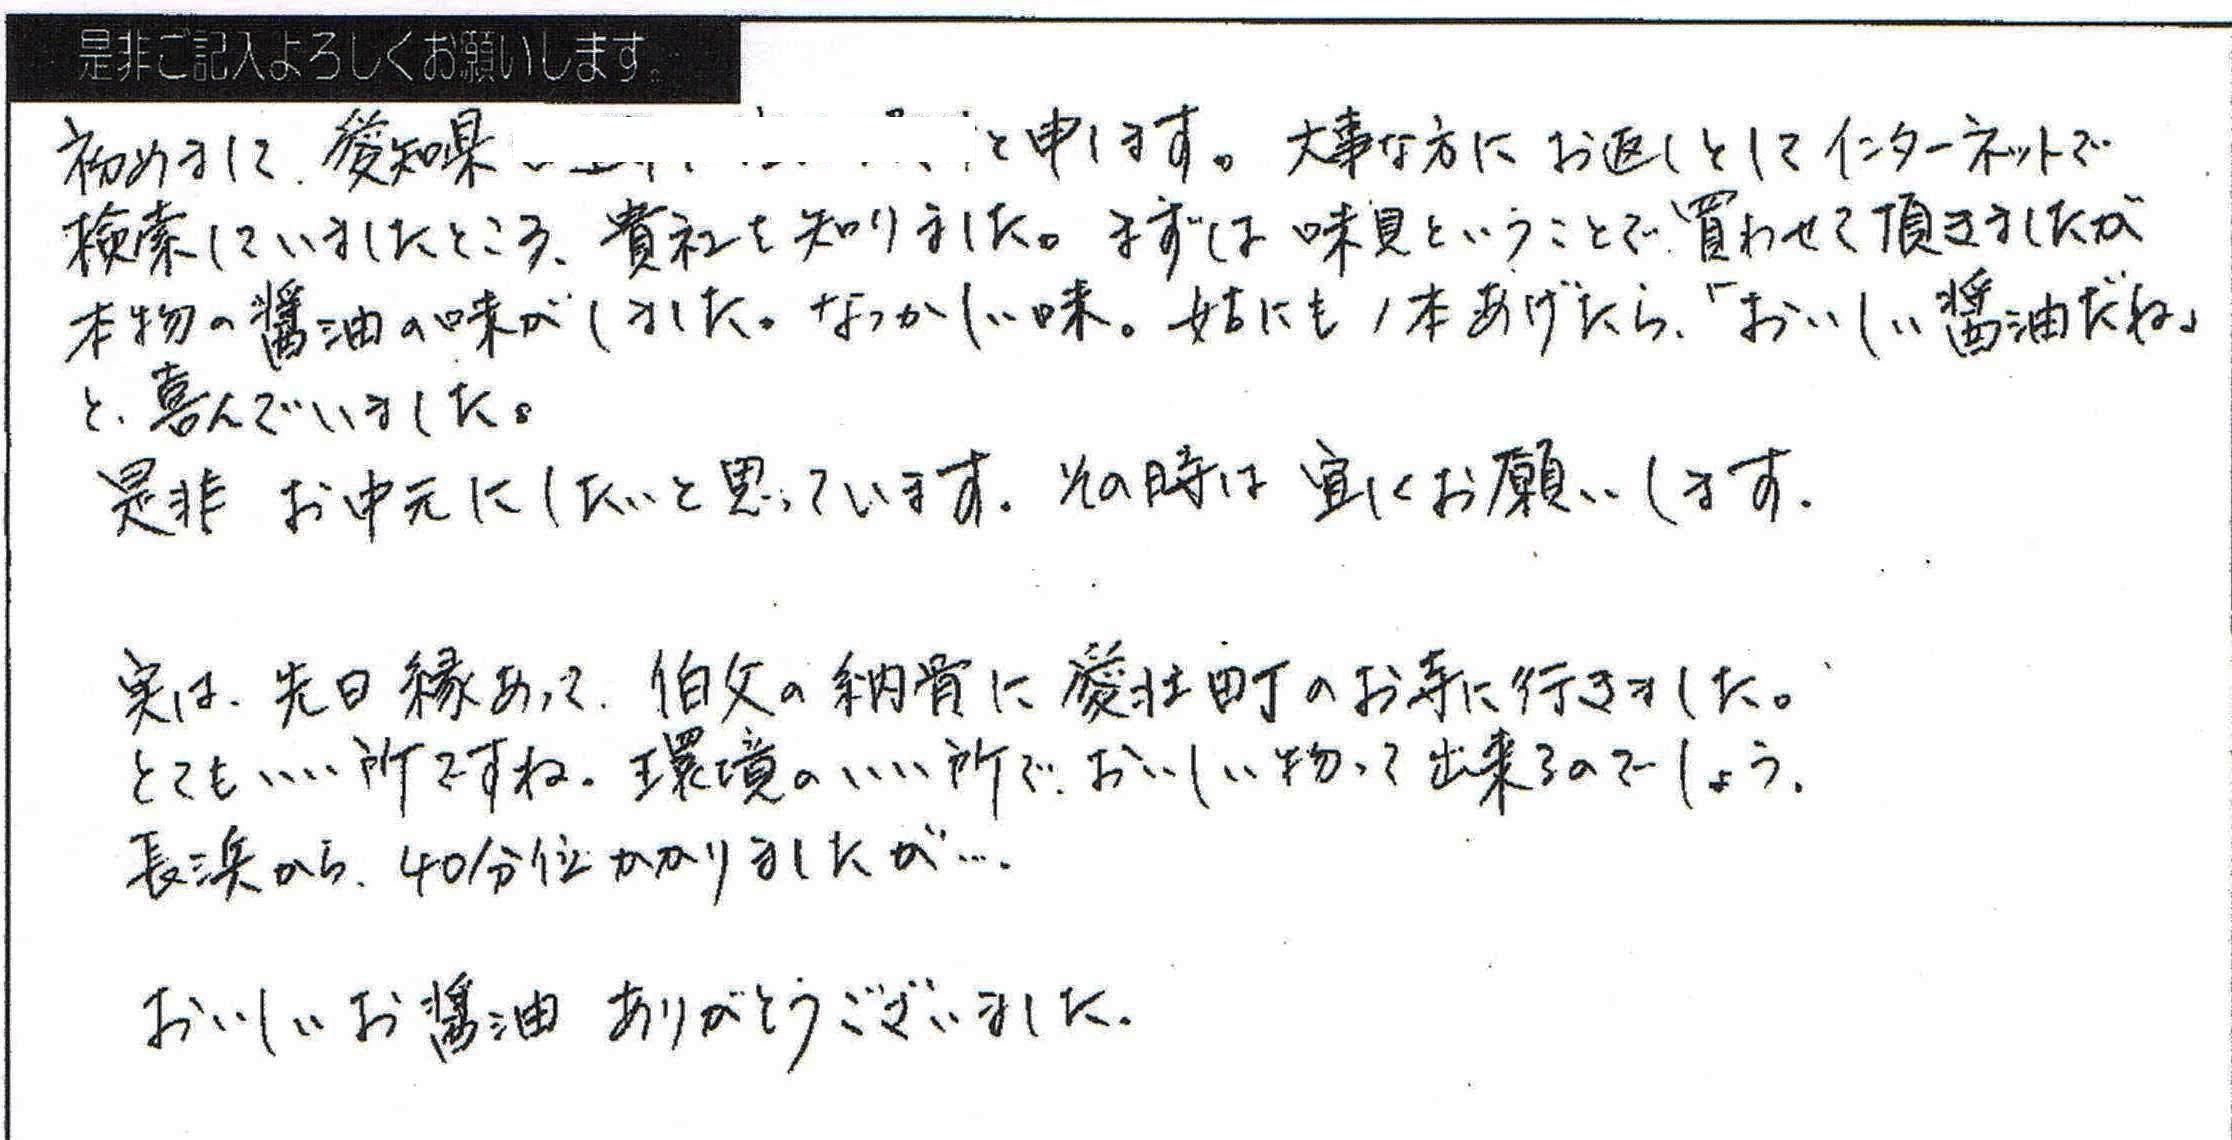 是非ご記入よろしくお願いします。
初めまして、愛知県 と申します。大事な方にお返しとしてインターネットで
検索していましたところ、貴社を知りました。まずは味見ということで、買わせて頂きましたが
本物の醤油の味がしました。なつかしい味。姑にも1本あげたら、「おいしい醤油だね」
と、喜んでいました。
是非お中元にしたいと思っています。その時は宜しくお願いします。
実は、先日縁あって、伯父の納骨に愛荘町のお寺に行きました。
とてもいい所ですね。環境のいい所で、おいしい物って出来るのでしょう。
長浜から、40分位かかりましたが…。
おいしいお醤油ありがとうございました。